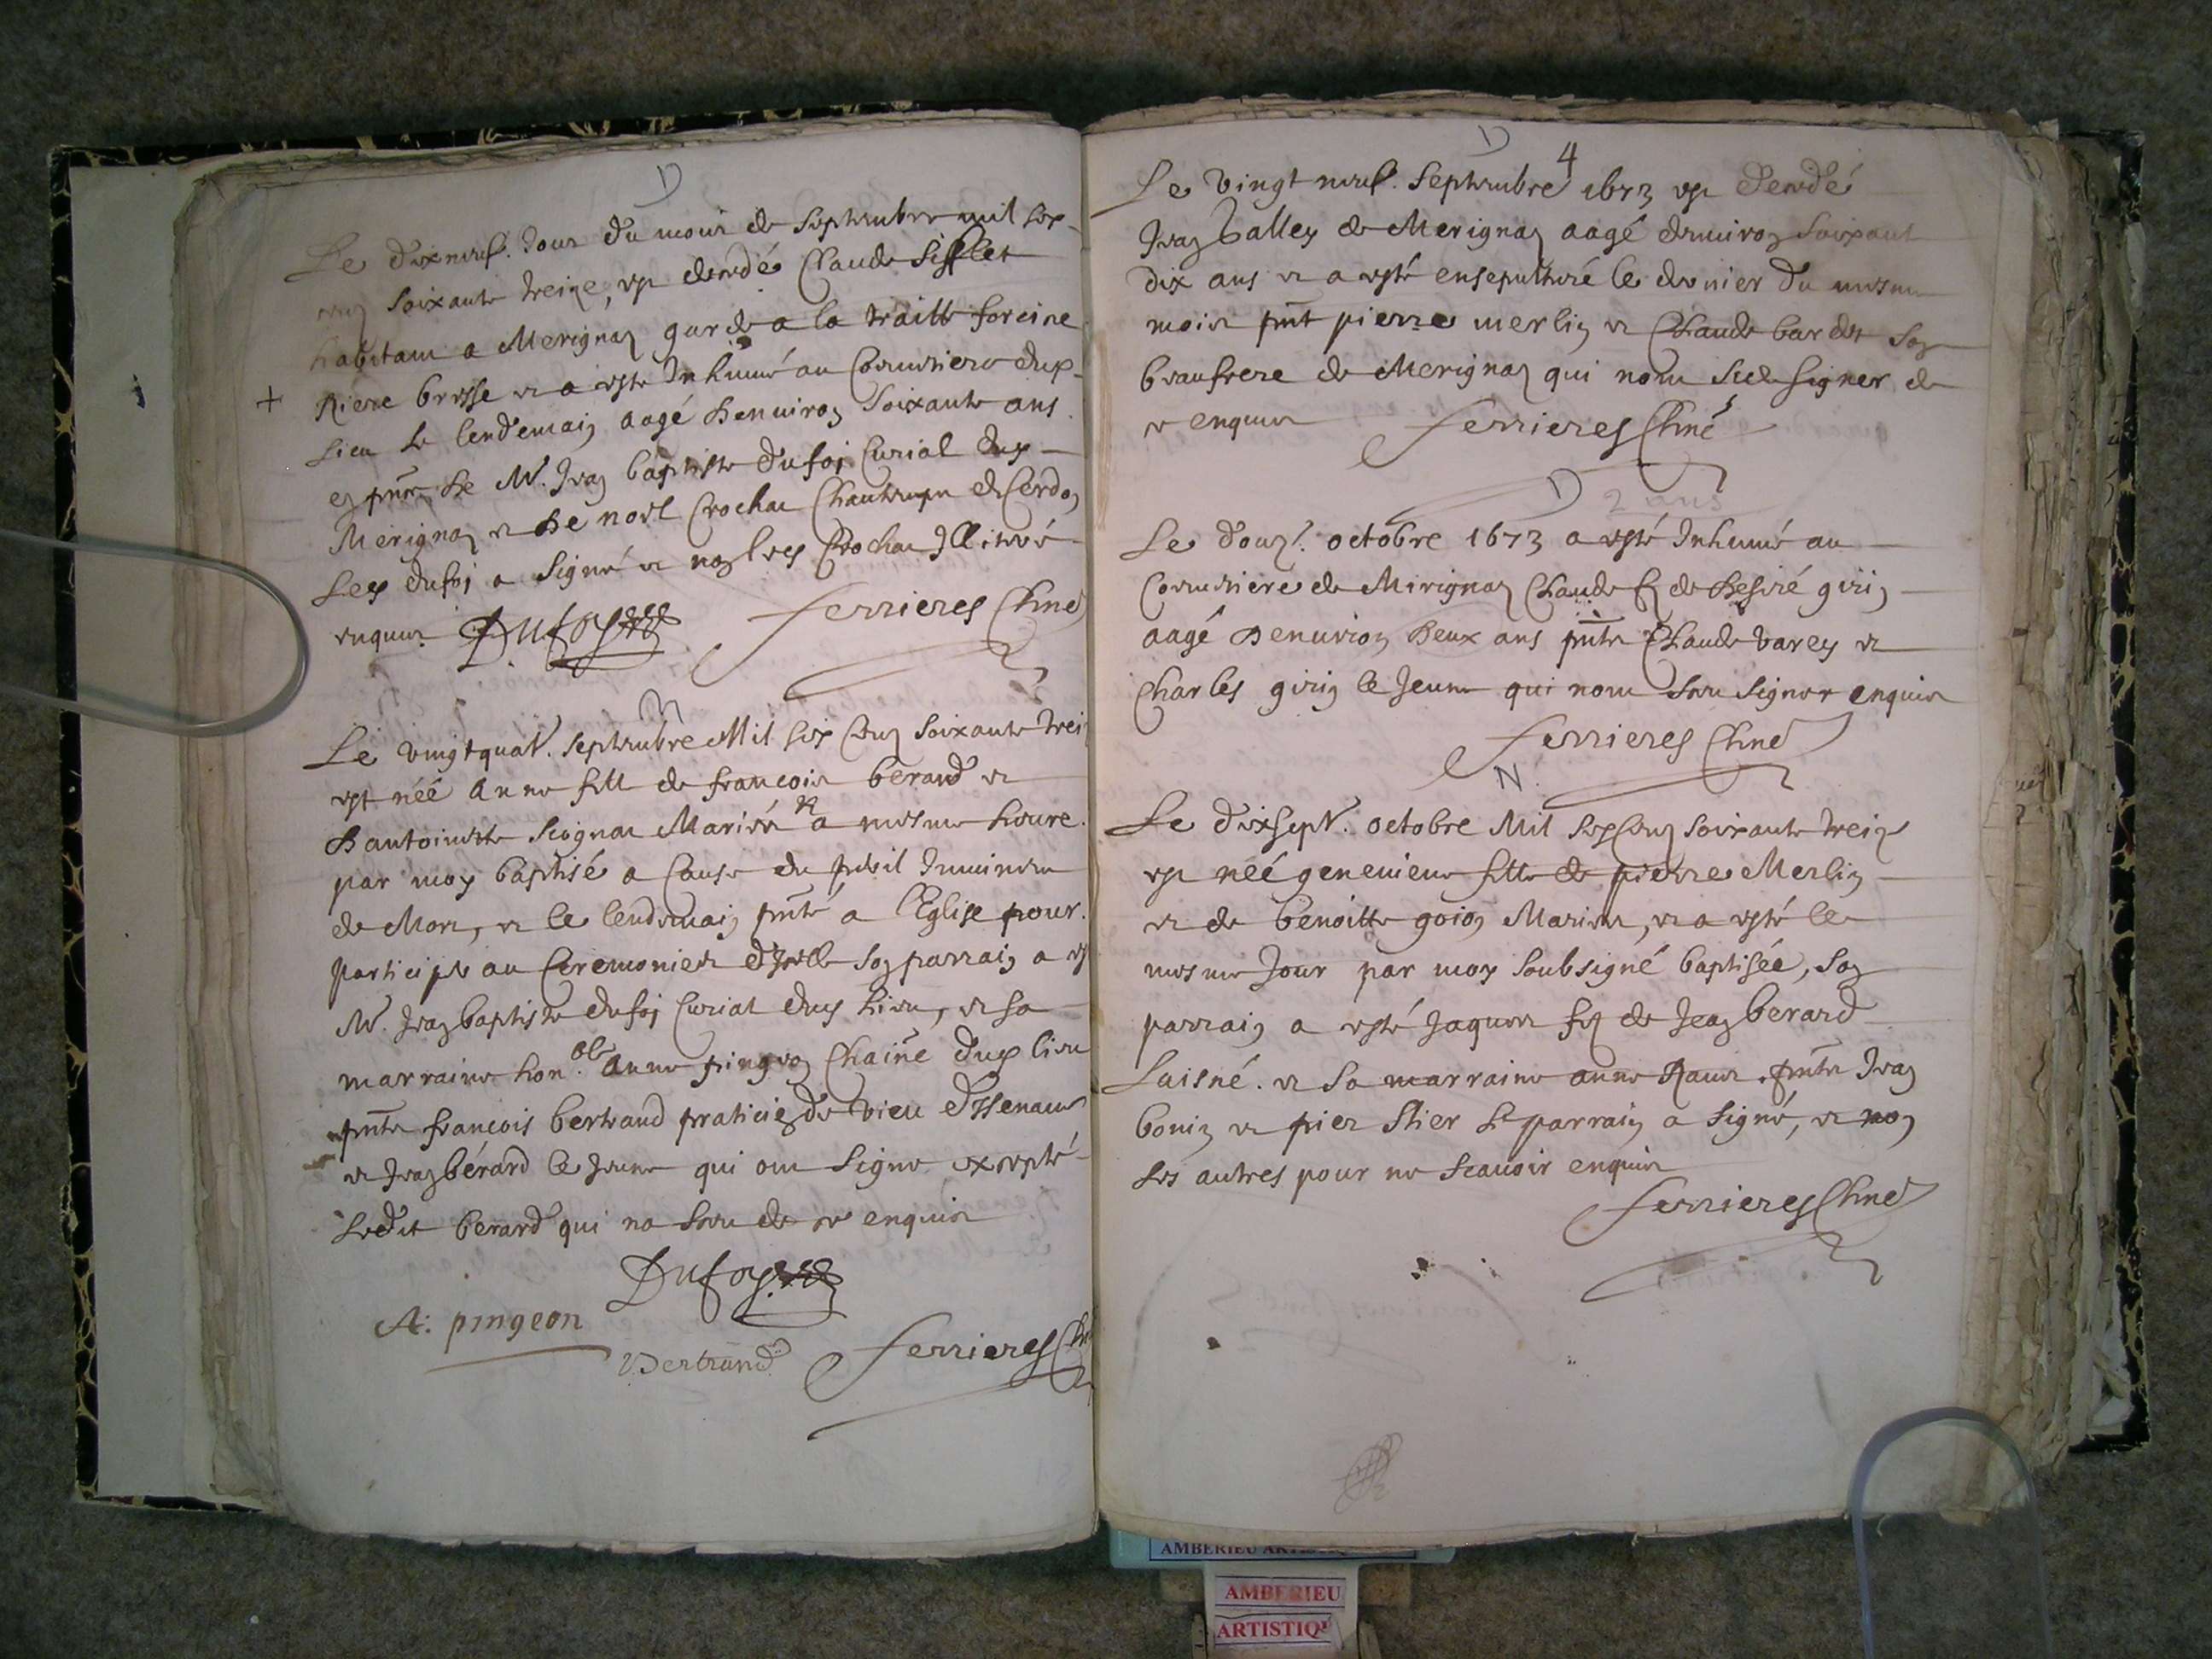 D
Le dixneuf. Jour du mois de septembre mil six
cens soixante treize, est decedé Claude Sifflet
habitant a Merignaz garde a la traitte foreine
+ Riere bresse et a esté Inhumé au Cemetiere dud
lieu le lendemain aagé denviron soixante ans
en pnce de Mr. Jean baptiste dufoj Curial dud
Merignaz et de noel Crochat de Cerdon
Led dufoj a signé et non led Crochat Illitteré
enquis Dufoy Ferrieres
N
Le vingtquatr. septembre Mil six Cens soixante trei
est néé Anne fille de francois berard et
dantoinette Mariés et a mesme heure
par moy baptisé a Cause du peril Imminent
de Mort, et le lendemain pnté a l'Eglise pour
participer au Ceremonies dIcelle son parrain a est
Mr. Jean baptiste dufoj Curial dud lieu, et sa
marraine hon.ble Anne pingeon dud lieu
pnts francois bertrand praticien de vieu
et Jean bérard le Jeune qui ont signé excepté
Ledit berard qui na sceu de ce enquis
Dufoy
A: pingeon
Bertrand Ferrieres
D
4
Le vingt neuf. septembre 1673 est decedé
Jean balley de Merignaz aagé denviron soixant
dix ans et a esté ensepulturé le dernier du mesme
mois pnt pierre merlin et Claude bardet son
beaufrere de Merignaz qui nont sceu signer de
ce enquis Ferrieres
D
2 ans
Le douz. octobre 1673 a esté Inhumé au
Cemetiere de Mirignaz Claude fz de Desiré girin
aagé denviron deux ans pnts Claude varey et
Charles girin le Jeune qui nont sceu signer enquis
Ferrieres
N
Le dixsept. octobre Mil six Cens soixante treize
est néé genevieve fille de pierre Merlin
et de benoitte goion Mariés, et a esté le
mesme Jour par moy soubsigné baptiséé, son
parrain a esté Jaques fz de Jean berard
Laisné. et sa marraine anne pnts Jean
bonin et le parrain a signé, et non
les autres pour ne scavoir enquis
Ferrieres
AMBERIEU
AMBERIEU
ARTISTIQ